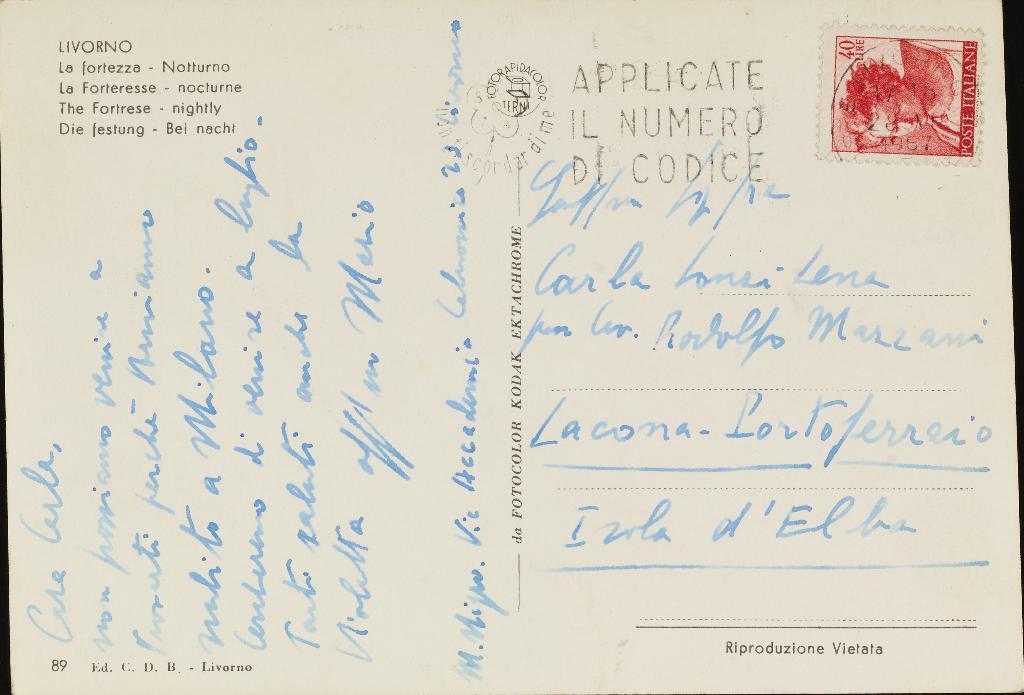 LIVORNO
La fortezza - Notturno
La Forteresse - nocturne
The Fortrese - nightly
Die festung - Bei nacht
Cara Carla,
non possiamo venire a
trovarti perchè torniamo
subito a Milano.
Cercheremo di venire a luglio.
Tanti saluti anche la
Violetta aff.mo Mario
M. Nigro. Via Accademia Labronica 23 Livorno
89 Ed. C. D. B. - Livorno
da FOTOCOLOR KODAK EKTACHROME
FOTORAPIDACOLOR
TERNI
non scordar di me
APPLICATE
IL NUMERO
DI CODICE
40 LIRE
POSTE ITALIANE
Carla Lonzi Lena
Rodolfo Marzani
Lacona - Portoferraio
Isola d'Elba
Riproduzione Vietata